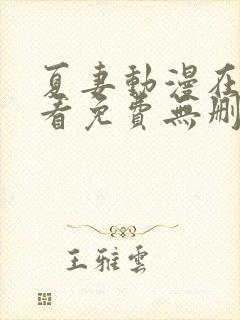 夏妻動漫在
看免費無刪
王雅雲